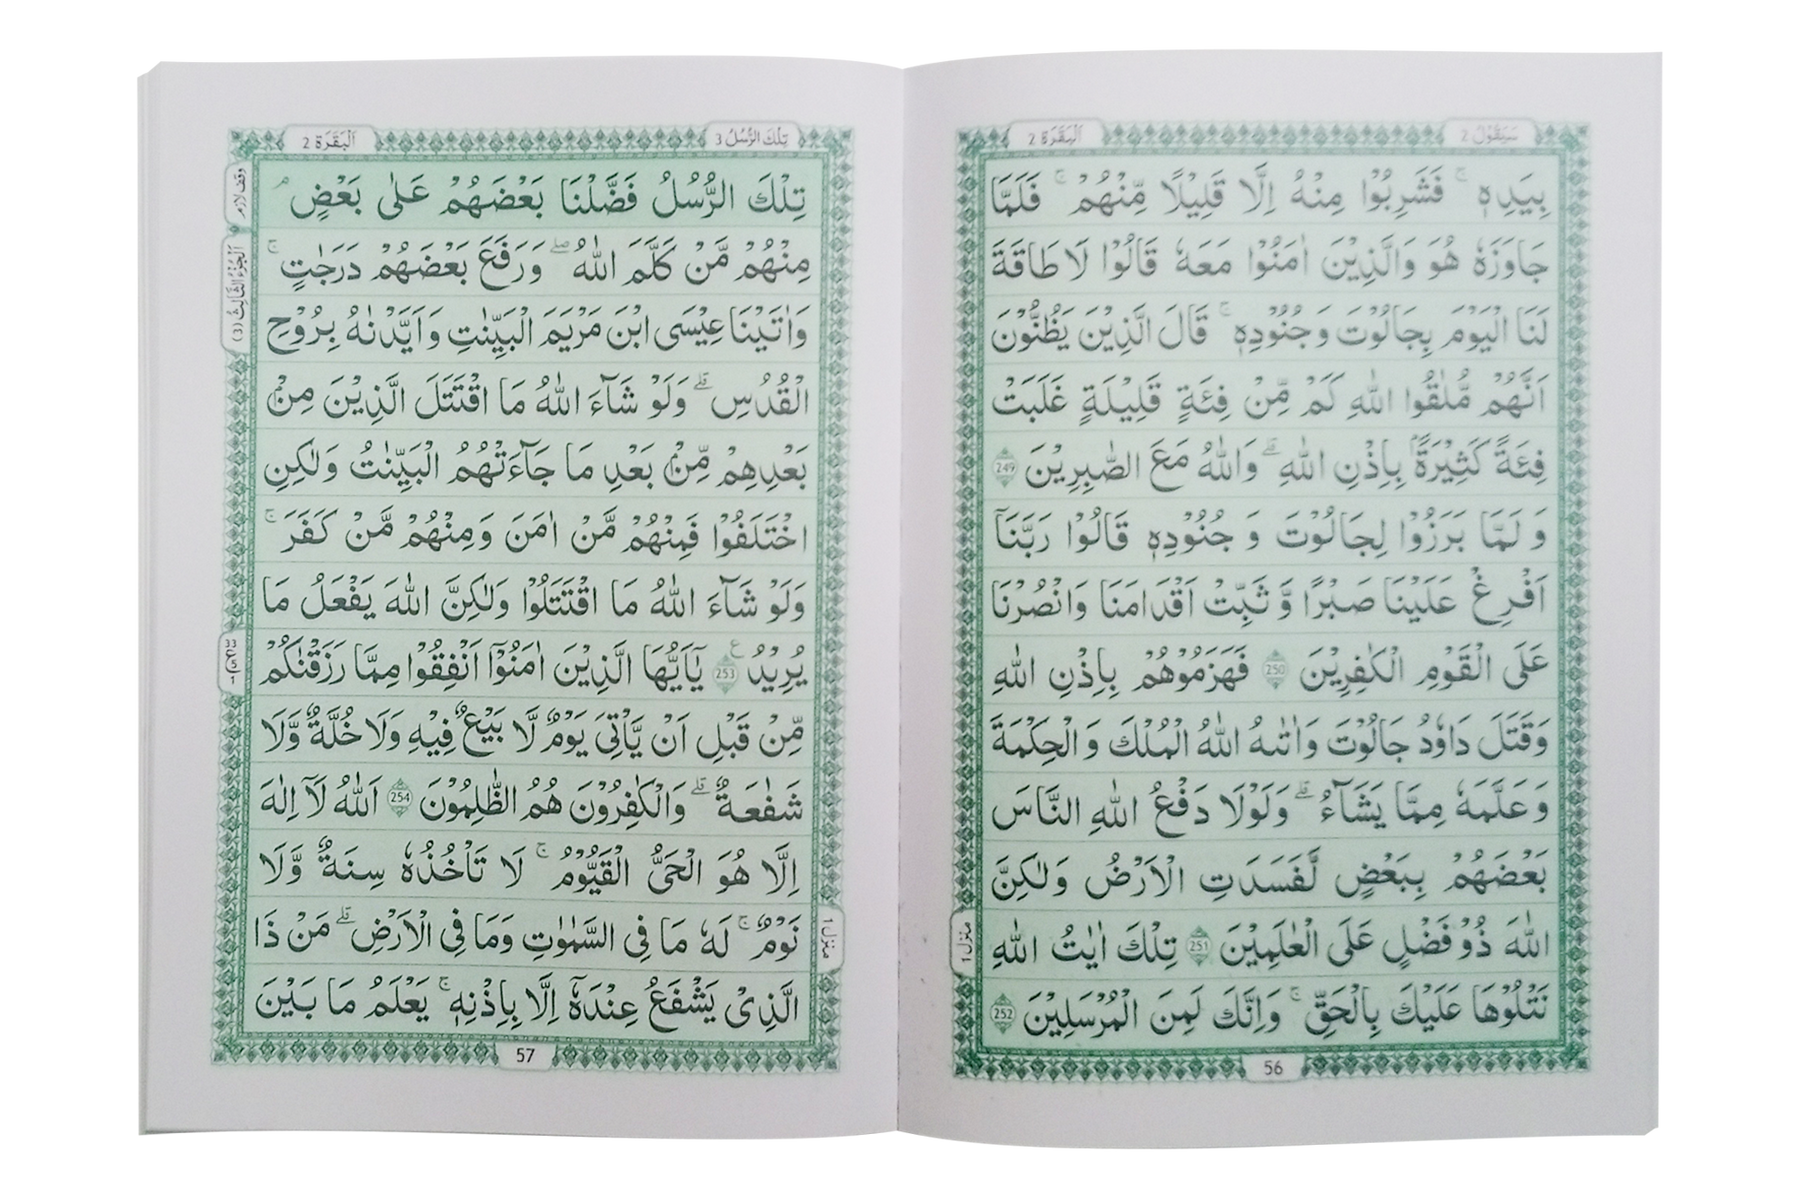 سَيَقُوْلُ 2
اَلْبَقَرَة 2
بِيَدِهٖ ۚ فَشَرِبُوْا مِنْهُ اِلَّا قَلِيْلًا مِّنْهُمْ ۚ فَلَمَّا
جَاوَزَهٗ هُوَ وَالَّذِيْنَ اٰمَنُوْا مَعَهٗ قَالُوْا لَا طَاقَةَ
لَنَا الْيَوْمَ بِجَالُوْتَ وَجُنُوْدِهٖ ۚ قَالَ الَّذِيْنَ يَظُنُّوْنَ
اَنَّهُمْ مُّلٰقُوا اللّٰهِ كَمْ مِّنْ فِئَةٍ قَلِيْلَةٍ غَلَبَتْ
فِئَةً كَثِيْرَةًۢ بِاِذْنِ اللّٰهِ ۗ وَاللّٰهُ مَعَ الصّٰبِرِيْنَ 249
وَلَمَّا بَرَزُوْا لِجَالُوْتَ وَجُنُوْدِهٖ قَالُوْا رَبَّنَآ
اَفْرِغْ عَلَيْنَا صَبْرًا وَّثَبِّتْ اَقْدَامَنَا وَانْصُرْنَا
عَلَى الْقَوْمِ الْكٰفِرِيْنَ 250 فَهَزَمُوْهُمْ بِاِذْنِ اللّٰهِ
وَقَتَلَ دَاوٗدُ جَالُوْتَ وَاٰتٰىهُ اللّٰهُ الْمُلْكَ وَالْحِكْمَةَ
وَعَلَّمَهٗ مِمَّا يَشَآءُ ۗ وَلَوْلَا دَفْعُ اللّٰهِ النَّاسَ
بَعْضَهُمْ بِبَعْضٍ لَّفَسَدَتِ الْاَرْضُ وَلٰكِنَّ
اللّٰهَ ذُوْ فَضْلٍ عَلَى الْعٰلَمِيْنَ 251 تِلْكَ اٰيٰتُ اللّٰهِ
نَتْلُوْهَا عَلَيْكَ بِالْحَقِّ ۚ وَاِنَّكَ لَمِنَ الْمُرْسَلِيْنَ 252
منزل ۱
56
تِلْكَ الرُّسُلُ 3
اَلْبَقَرَة 2
تِلْكَ الرُّسُلُ فَضَّلْنَا بَعْضَهُمْ عَلٰى بَعْضٍ ۘ
مِنْهُمْ مَّنْ كَلَّمَ اللّٰهُ ۖ وَرَفَعَ بَعْضَهُمْ دَرَجٰتٍ ۚ
وَاٰتَيْنَا عِيْسَى ابْنَ مَرْيَمَ الْبَيِّنٰتِ وَاَيَّدْنٰهُ بِرُوْحِ
الْقُدُسِ ۗ وَلَوْ شَآءَ اللّٰهُ مَا اقْتَتَلَ الَّذِيْنَ مِنْۢ
بَعْدِهِمْ مِّنْۢ بَعْدِ مَا جَآءَتْهُمُ الْبَيِّنٰتُ وَلٰكِنِ
اخْتَلَفُوْا فَمِنْهُمْ مَّنْ اٰمَنَ وَمِنْهُمْ مَّنْ كَفَرَ ۚ
وَلَوْ شَآءَ اللّٰهُ مَا اقْتَتَلُوْا وَلٰكِنَّ اللّٰهَ يَفْعَلُ مَا
يُرِيْدُ 253 ع يٰٓاَيُّهَا الَّذِيْنَ اٰمَنُوْٓا اَنْفِقُوْا مِمَّا رَزَقْنٰكُمْ
مِّنْ قَبْلِ اَنْ يَّاْتِيَ يَوْمٌ لَّا بَيْعٌ فِيْهِ وَلَا خُلَّةٌ وَّلَا
شَفٰعَةٌ ۗ وَالْكٰفِرُوْنَ هُمُ الظّٰلِمُوْنَ 254 اَللّٰهُ لَآ اِلٰهَ
اِلَّا هُوَ الْحَيُّ الْقَيُّوْمُ ۚ لَا تَاْخُذُهٗ سِنَةٌ وَّلَا
نَوْمٌ ۚ لَهٗ مَا فِي السَّمٰوٰتِ وَمَا فِي الْاَرْضِ ۗ مَنْ ذَا
الَّذِيْ يَشْفَعُ عِنْدَهٗٓ اِلَّا بِاِذْنِهٖ ۚ يَعْلَمُ مَا بَيْنَ
وقف لازم
اَلْجُزْءُ الثَّالِثُ (3)
33
ع
۱
منزل ۱
57